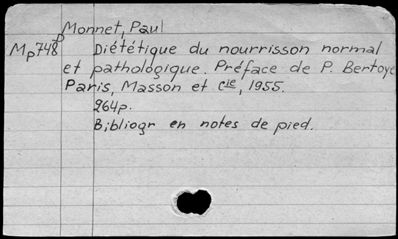 Monnet, Paul
Mp748p Diététique du nourrisson normal
et pathologique. Préface de P. Bertoye
Paris, Masson et Cie, 1955.
264p.
Bibliogr en notes de pied.